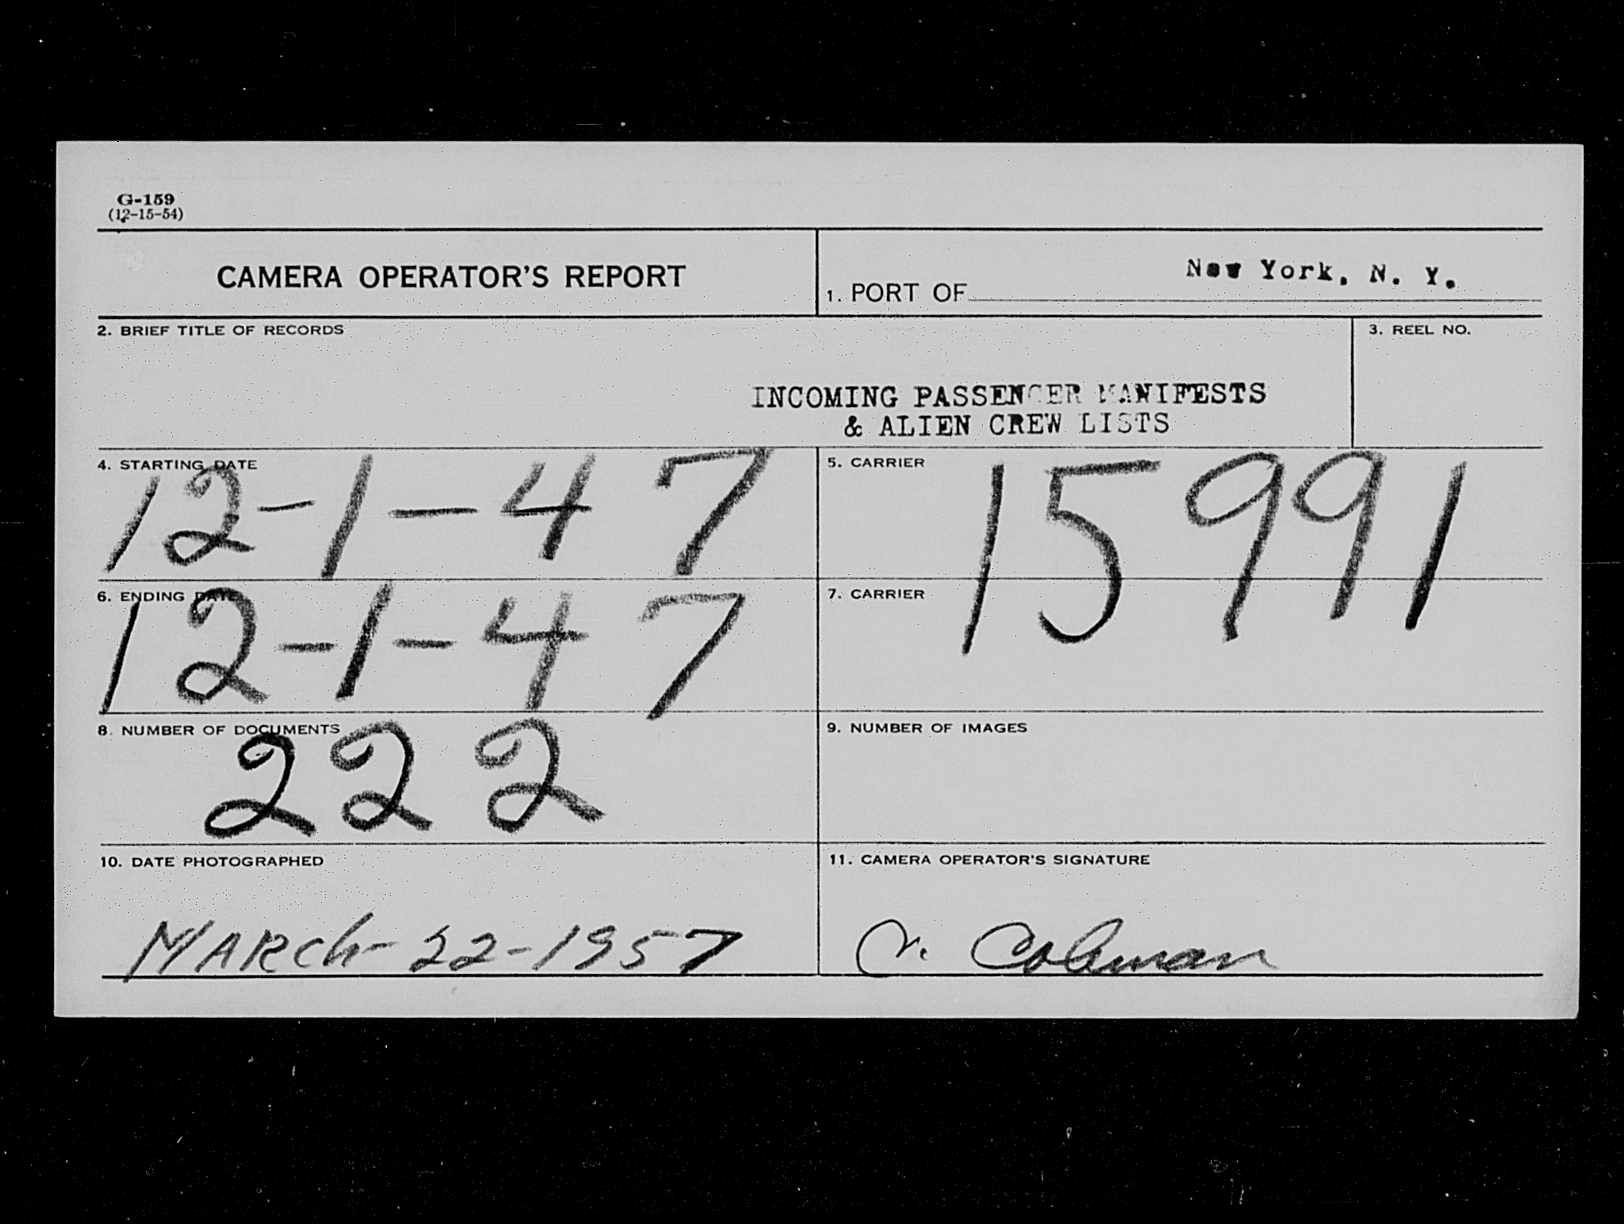 G-159
(12-15-54)
CAMERA OPERATOR'S REPORT
1. PORT OF New York, N. Y.
2. BRIEF TITLE OF RECORDS
3. REEL NO.
INCOMING PASSENGER MANIFESTS
& ALIEN CREW LISTS
4. STARTING DATE
12-1-47
5. CARRIER
15991
6. ENDING DATE
12-1-47
7. CARRIER
8. NUMBER OF DOCUMENTS
222
9. NUMBER OF IMAGES
10. DATE PHOTOGRAPHED
MARch-22-1957
11. CAMERA OPERATOR'S SIGNATURE
Colman